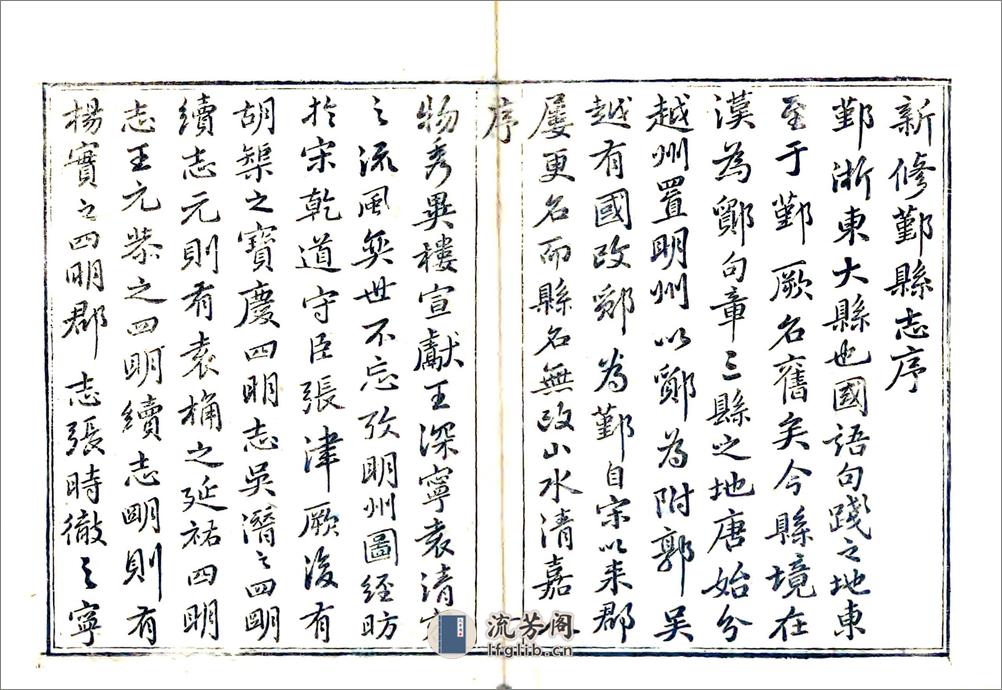 新修鄞縣志序
鄞浙東大縣也國語句踐之地東
至于鄞厥名舊矣今縣境在
漢為鄮句章三縣之地唐始分
越州置明州以鄮為附郭吳
越有國改鄮為鄞自宋以来郡
屢更名而縣名無改山水清嘉
序
物秀異樓宣獻王深寧袁清
之流風奕世不忘攷明州圖經昉
於宋乾道守臣張津厥後有
胡榘之寶慶四明志吳潛之四明
續志元則有袁桷之延祐四明
志王元恭之四明續志明則有
楊實之四明郡志張時徹之寧
流芳阁
lfglib.cn